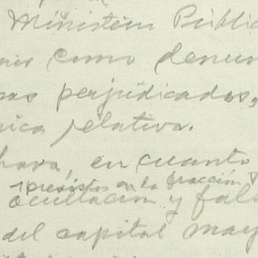 Ministerio Públic
como denun
perjudicados,
relativa.
en cuanto
previstos en la fracción
ocultación y fals
del capital may